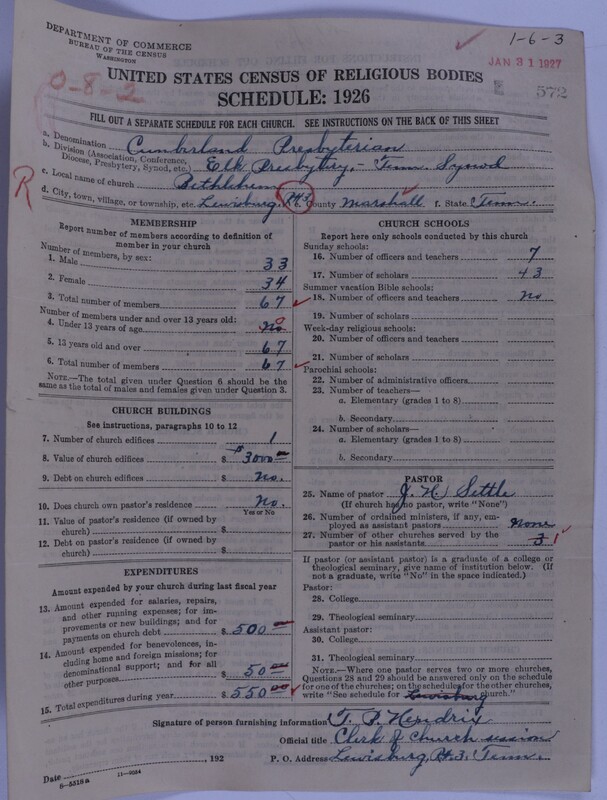 DEPARTMENT OF COMMERCE
BUREAU OF THE CENSUS
WASHINGTON
1-6-3
JAN 31 1927
0-8-2
572
UNITED STATES CENSUS OF RELIGIOUS BODIES
SCHEDULE: 1926
FILL OUT A SEPARATE SCHEDULE FOR EACH CHURCH. SEE INSTRUCTIONS ON THE BACK OF THIS SHEET
a. Denomination Cumberland Presbyterian
b. Division (Association, Conference, Diocese, Presbytery, Synod, etc.) Elk Presbytery, - Tenn. Synod
R
c. Local name of church Bethlehem
d. City, town, village, or township, etc. Lewisburg, R#3 e. County Marshall f. State Tenn.
MEMBERSHIP
Report number of members according to definition of
member in your church
Number of members, by sex:
1. Male 33
2. Female 34
3. Total number of members 67
Number of members under and over 13 years old:
4. Under 13 years of age No 0
5. 13 years old and over 67
6. Total number of members 67
NOTE.—The total given under Question 6 should be the
same as the total of males and females given under Question 3.
CHURCH BUILDINGS
See instructions, paragraphs 10 to 12
7. Number of church edifices 1
8. Value of church edifices $ 3000 00
9. Debt on church edifices $ No.
10. Does church own pastor's residence No.
Yes or No
11. Value of pastor's residence (if owned by
church) $
12. Debt on pastor's residence (if owned by
church) $
EXPENDITURES
Amount expended by your church during last fiscal year
13. Amount expended for salaries, repairs,
and other running expenses; for im-
provements or new buildings; and for
payments on church debt $ 500 00
14. Amount expended for benevolences, in-
cluding home and foreign missions; for
denominational support; and for all
other purposes $ 50 00
15. Total expenditures during year $ 550 00
CHURCH SCHOOLS
Report here only schools conducted by this church
Sunday schools:
16. Number of officers and teachers 7
17. Number of scholars 43
Summer vacation Bible schools:
18. Number of officers and teachers no
19. Number of scholars
Week-day religious schools:
20. Number of officers and teachers
21. Number of scholars
Parochial schools:
22. Number of administrative officers
23. Number of teachers—
a. Elementary (grades 1 to 8)
b. Secondary
24. Number of scholars—
a. Elementary (grades 1 to 8)
b. Secondary
PASTOR
25. Name of pastor J. H. Settle
(If church has no pastor, write "None")
26. Number of ordained ministers, if any, em-
ployed as assistant pastors None
27. Number of other churches served by the
pastor or his assistants 3 1
If pastor (or assistant pastor) is a graduate of a college or
theological seminary, give name of institution below. (If
not a graduate, write "No" in the space indicated.)
Pastor:
28. College
29. Theological seminary
Assistant pastor:
30. College
31. Theological seminary
NOTE.—Where one pastor serves two or more churches,
Questions 28 and 29 should be answered only on the schedule
for one of the churches; on the schedules for the other churches,
write "See schedule for Lewisburg church."
Signature of person furnishing information T. P. Hendrix
Official title Clerk of church session
Date , 192 P. O. Address Lewisburg, R#3, Tenn.
8-5518a 11-9024